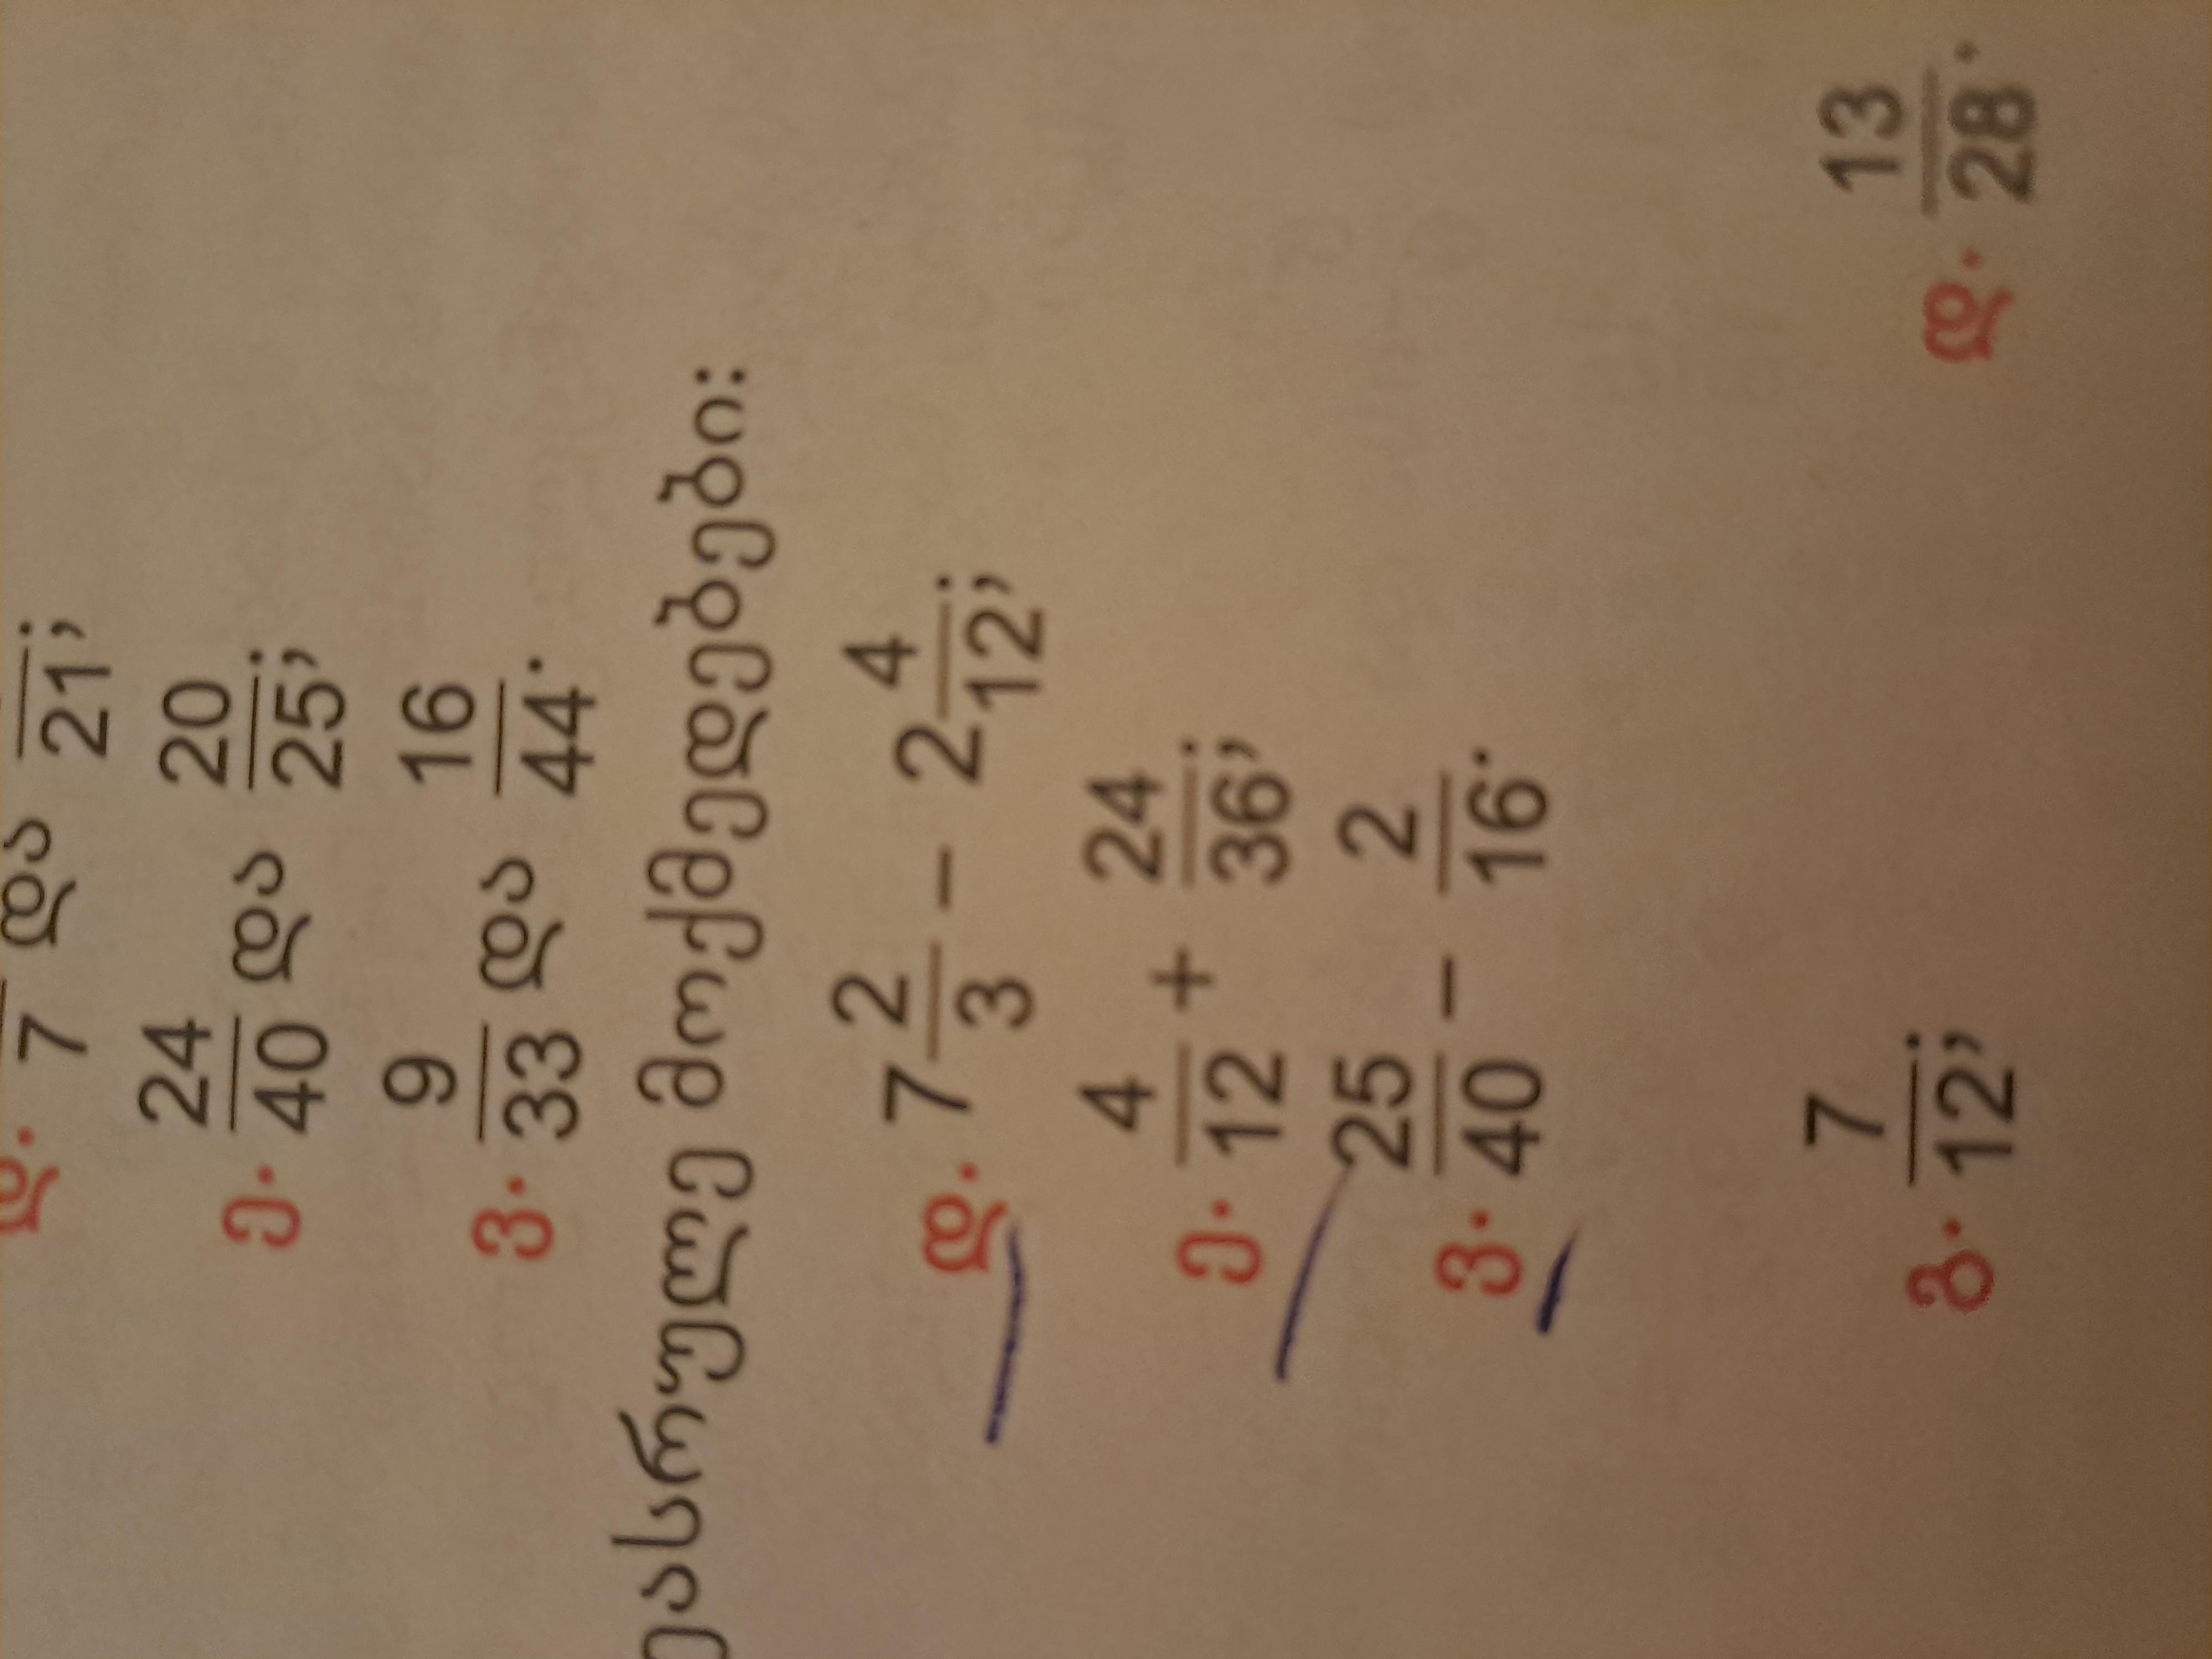 დ. 7 და 21;
ე. 24/40 და 20/25;
ვ. 9/33 და 16/44.
შეასრულე მოქმედებები:
დ. 7 2/3 − 2 4/12;
ე. 4/12 + 24/36;
ვ. 25/40 − 2/16.
გ. 7/12; დ. 13/28.